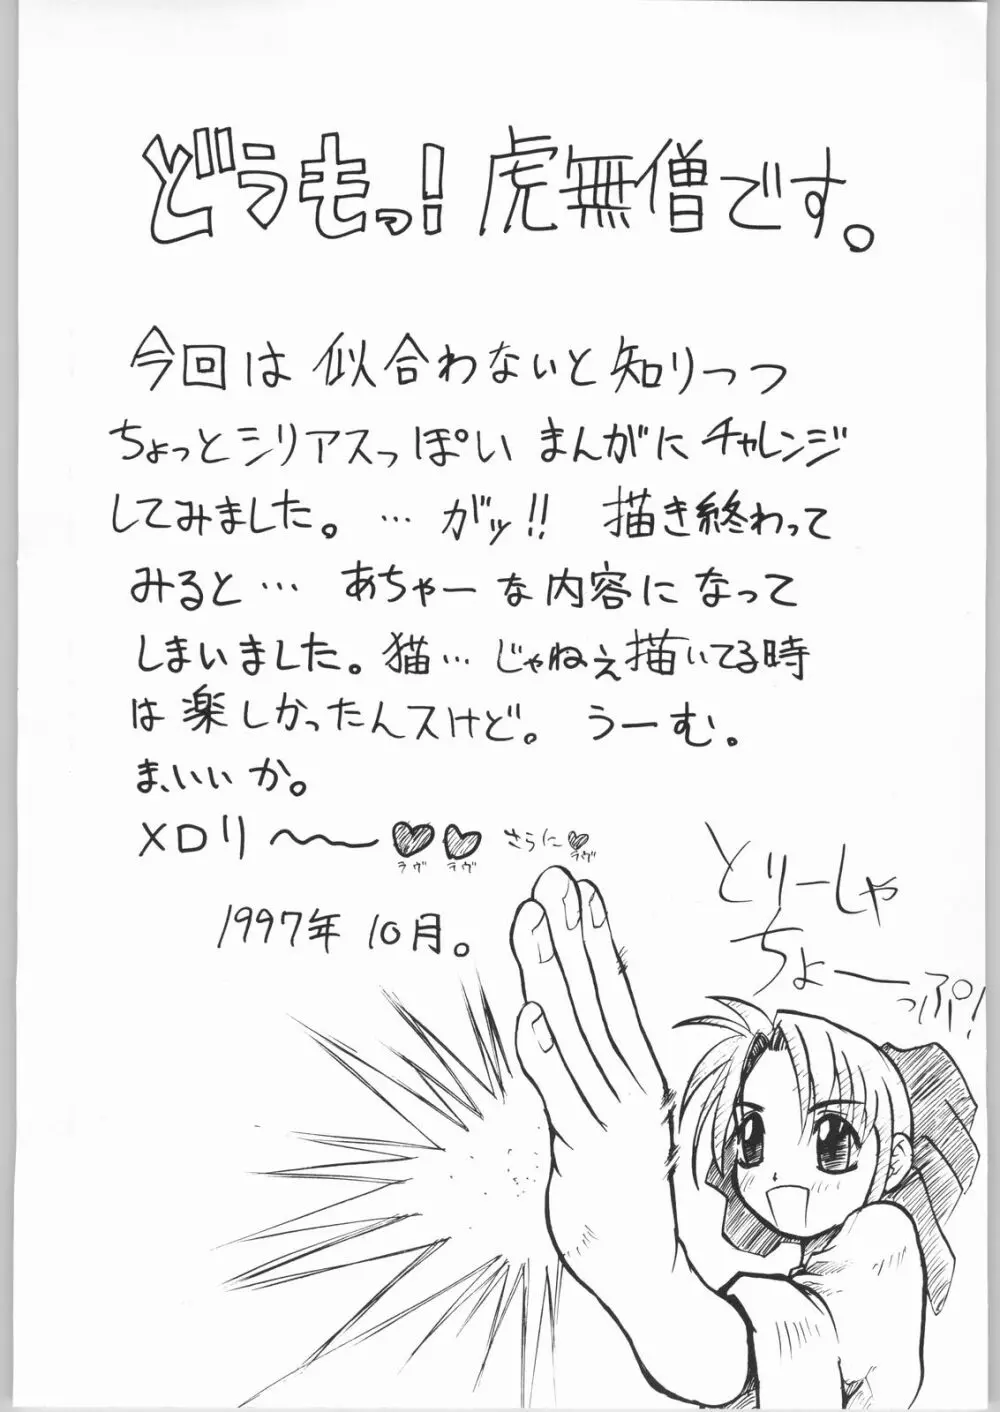 どうもっ!虎無僧です。
今回は似合わないと知りつつ
ちょっとシリアスっぽいまんがにチャレンジ
してみました。…がッ!! 描き終わって
みると… あちゃーな内容になって
しまいました。猫…じゃねぇ描いてる時
は楽しかったんスけど。うーむ。
ま、いいか。
メロリ〜〜♥♥ さらに♥
ラヴ ラヴ ラヴ
1997年10月。
とりーしゃ
ちょーっぷ!